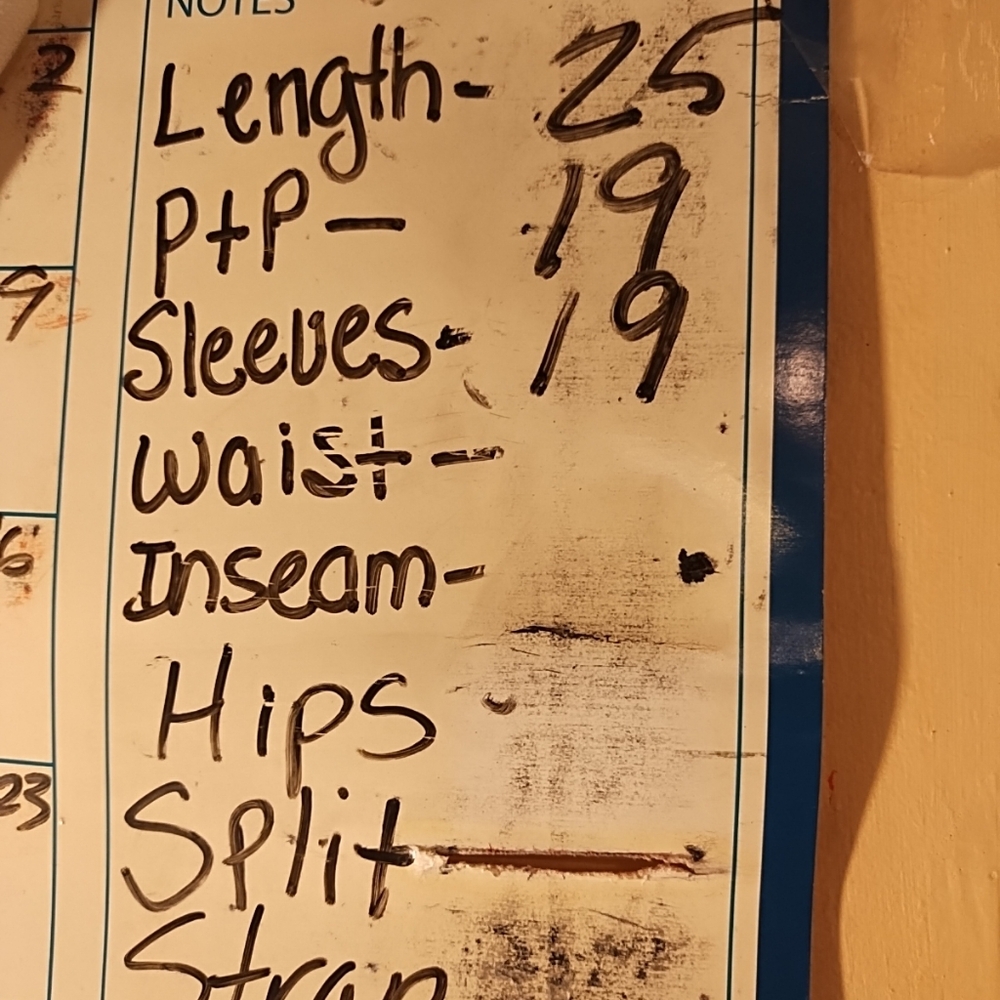 NOTES
2
Length- 25
PtP- 19
9
Sleeves- 19
Waist-
6
Inseam-
Hips -
23
Split
Strap